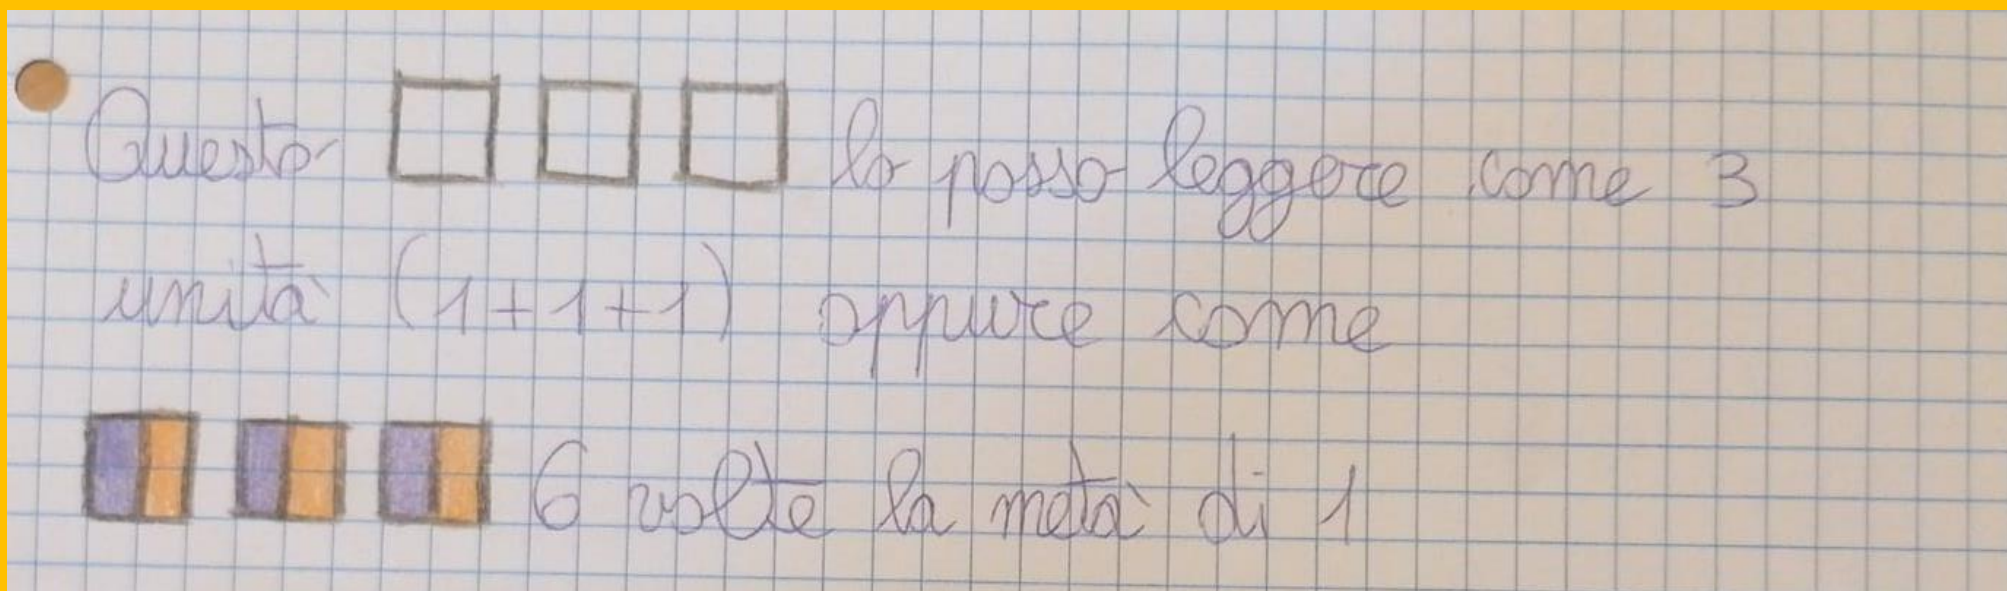 Questo lo posso leggere come 3
unità (1+1+1) oppure come
6 volte la metà di 1